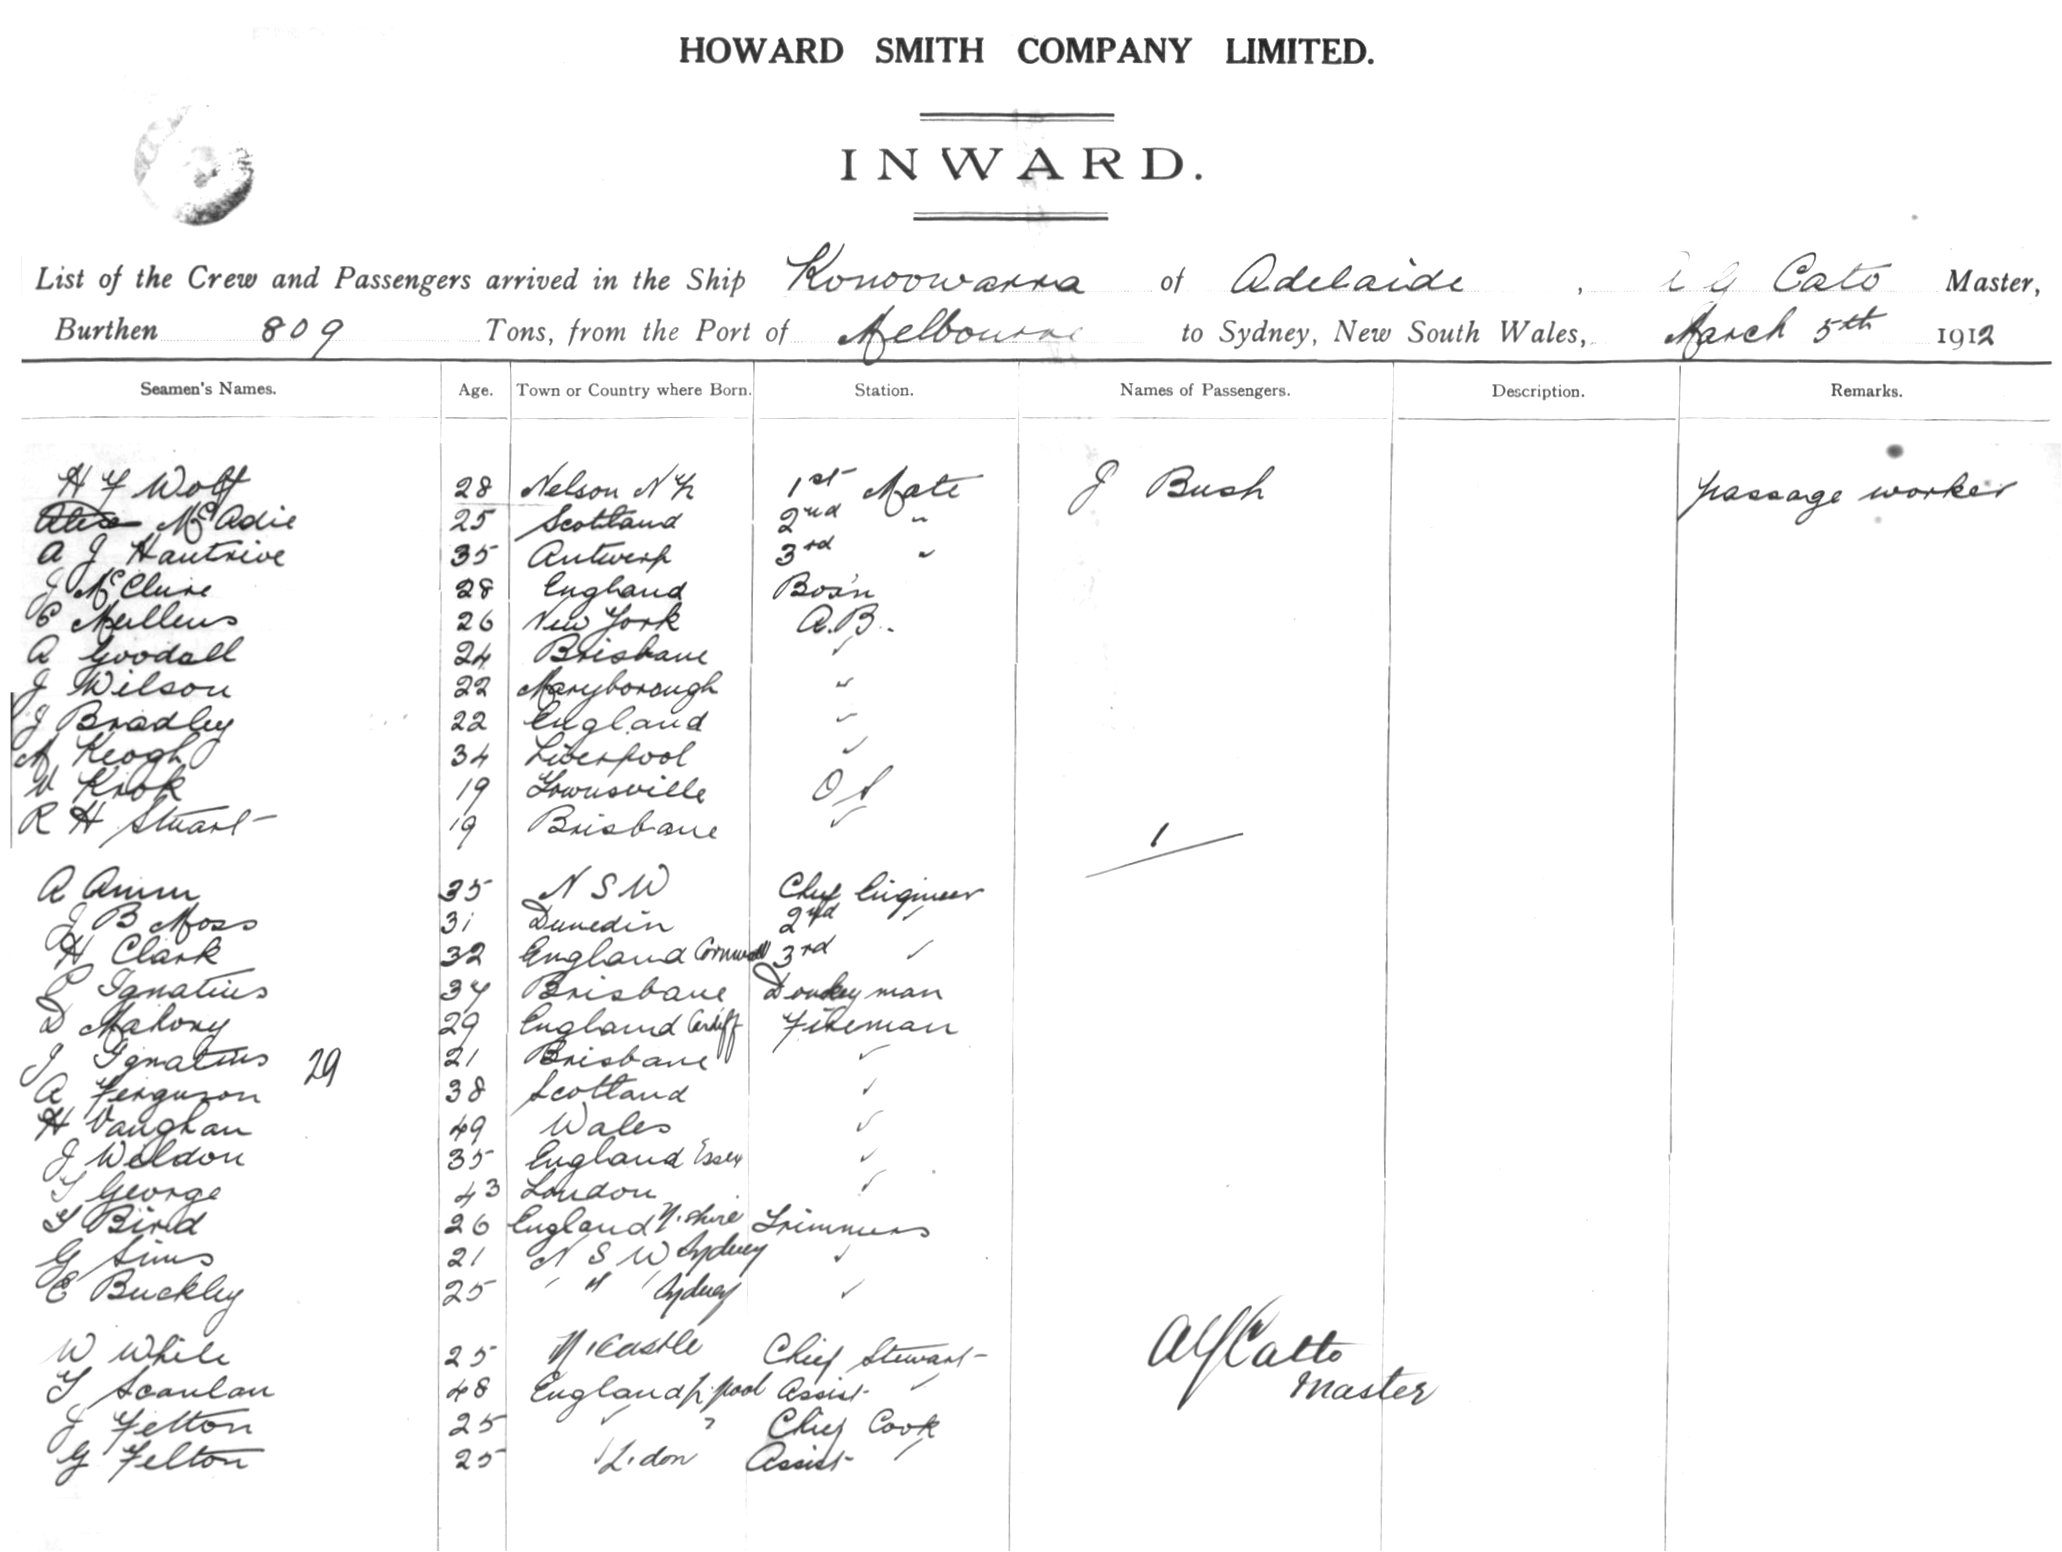 HOWARD SMITH COMPANY LIMITED.
INWARD.
List of the Crew and Passengers arrived in the Ship Konoowarra of Adelaide, A G Cato Master,
Burthen 809 Tons, from the Port of Melbourne to Sydney, New South Wales, March 5th 1912
Seamen's Names. Age. Town or Country where Born. Station. Names of Passengers. Description. Remarks.
H F Wolf 28 Nelson N Z 1st Mate J Bush passage worker
McAdie 25 Scotland 2nd "
A J Hautrive 35 Antwerp 3rd "
J McClure 28 England Bos'n
C Mullens 26 New York A.B.
A Goodall 24 Brisbane "
J Wilson 22 Maryborough "
J Bradley 22 England "
M Keogh 34 Liverpool "
W Krok 19 Townsville O S
R H Stuart 19 Brisbane "
1
A Amm 35 N S W Chief Engineer
J B Moss 31 Dunedin 2nd "
H Clark 32 England Cornwall 3rd "
P Ignatius 34 Brisbane Donkeyman
D Mahony 29 England Cardiff Fireman
J Ignatius 29 21 Brisbane "
A Ferguson 38 Scotland "
H Vaughan 49 Wales "
J Weldon 35 England Essex "
T George 43 London "
T Bird 26 England Y.shire Trimmers
G Sims 21 N S W Sydney "
E Buckley 25 " " " Sydney "
W While 25 N.Castle Chief Steward
T Scanlan 48 England L.pool Assist "
J Felton 25 " " Chief Cook
G Felton 25 " L.don Assist "
A G Catto
Master